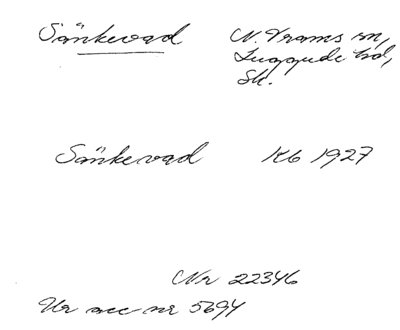 Sänkevad N. Vrams sn,
Luggude hd,
Sk.
Sänkevad Kb 1927
Nr 22346
Ur acc nr 5694